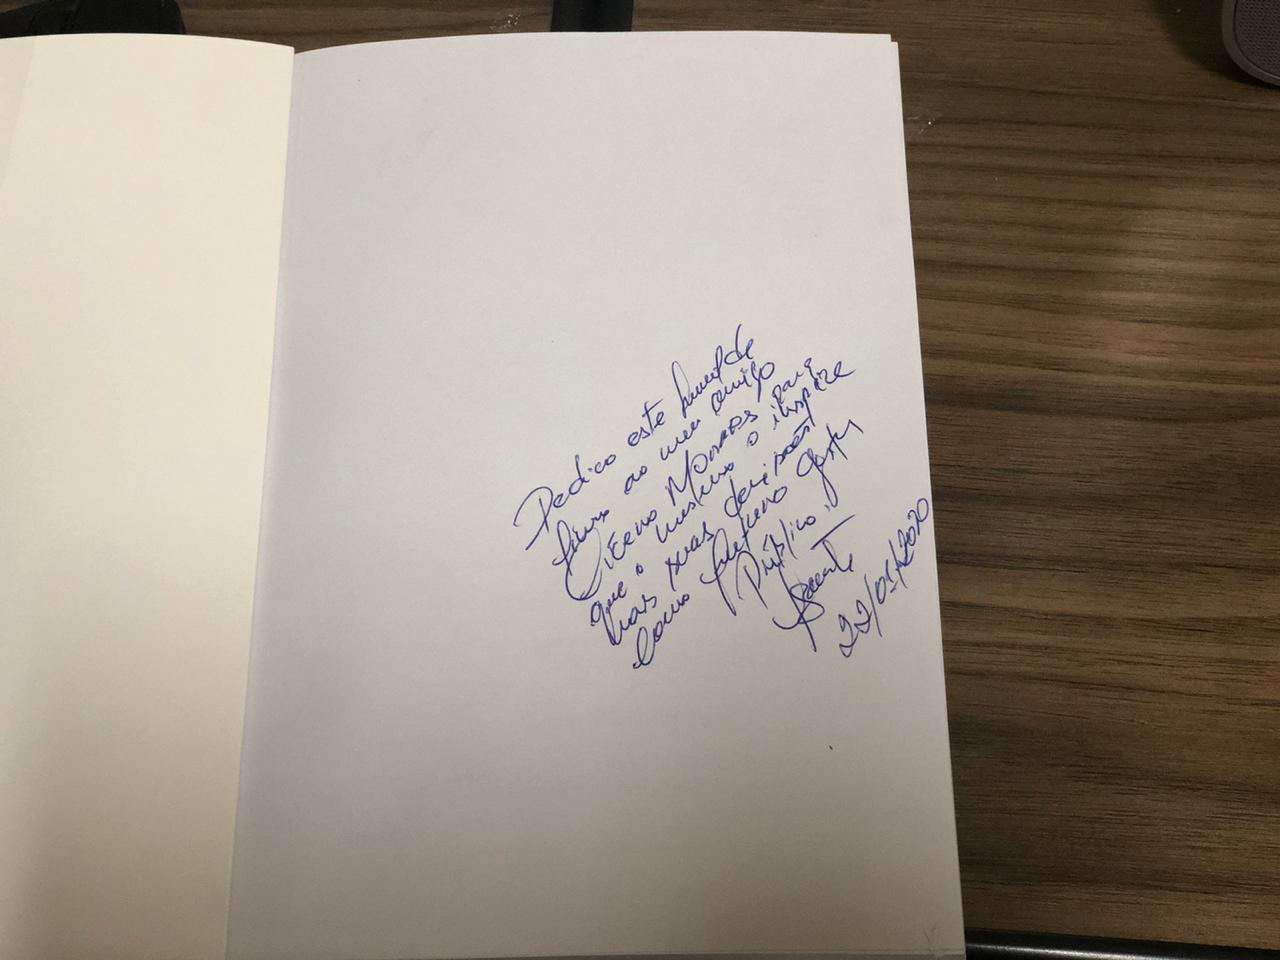 Dedico este humilde
livro ao meu amigo
Moraes para
que o mesmo o inspire
nas suas decisões
como futuro gestor
Público.
22/01/2020